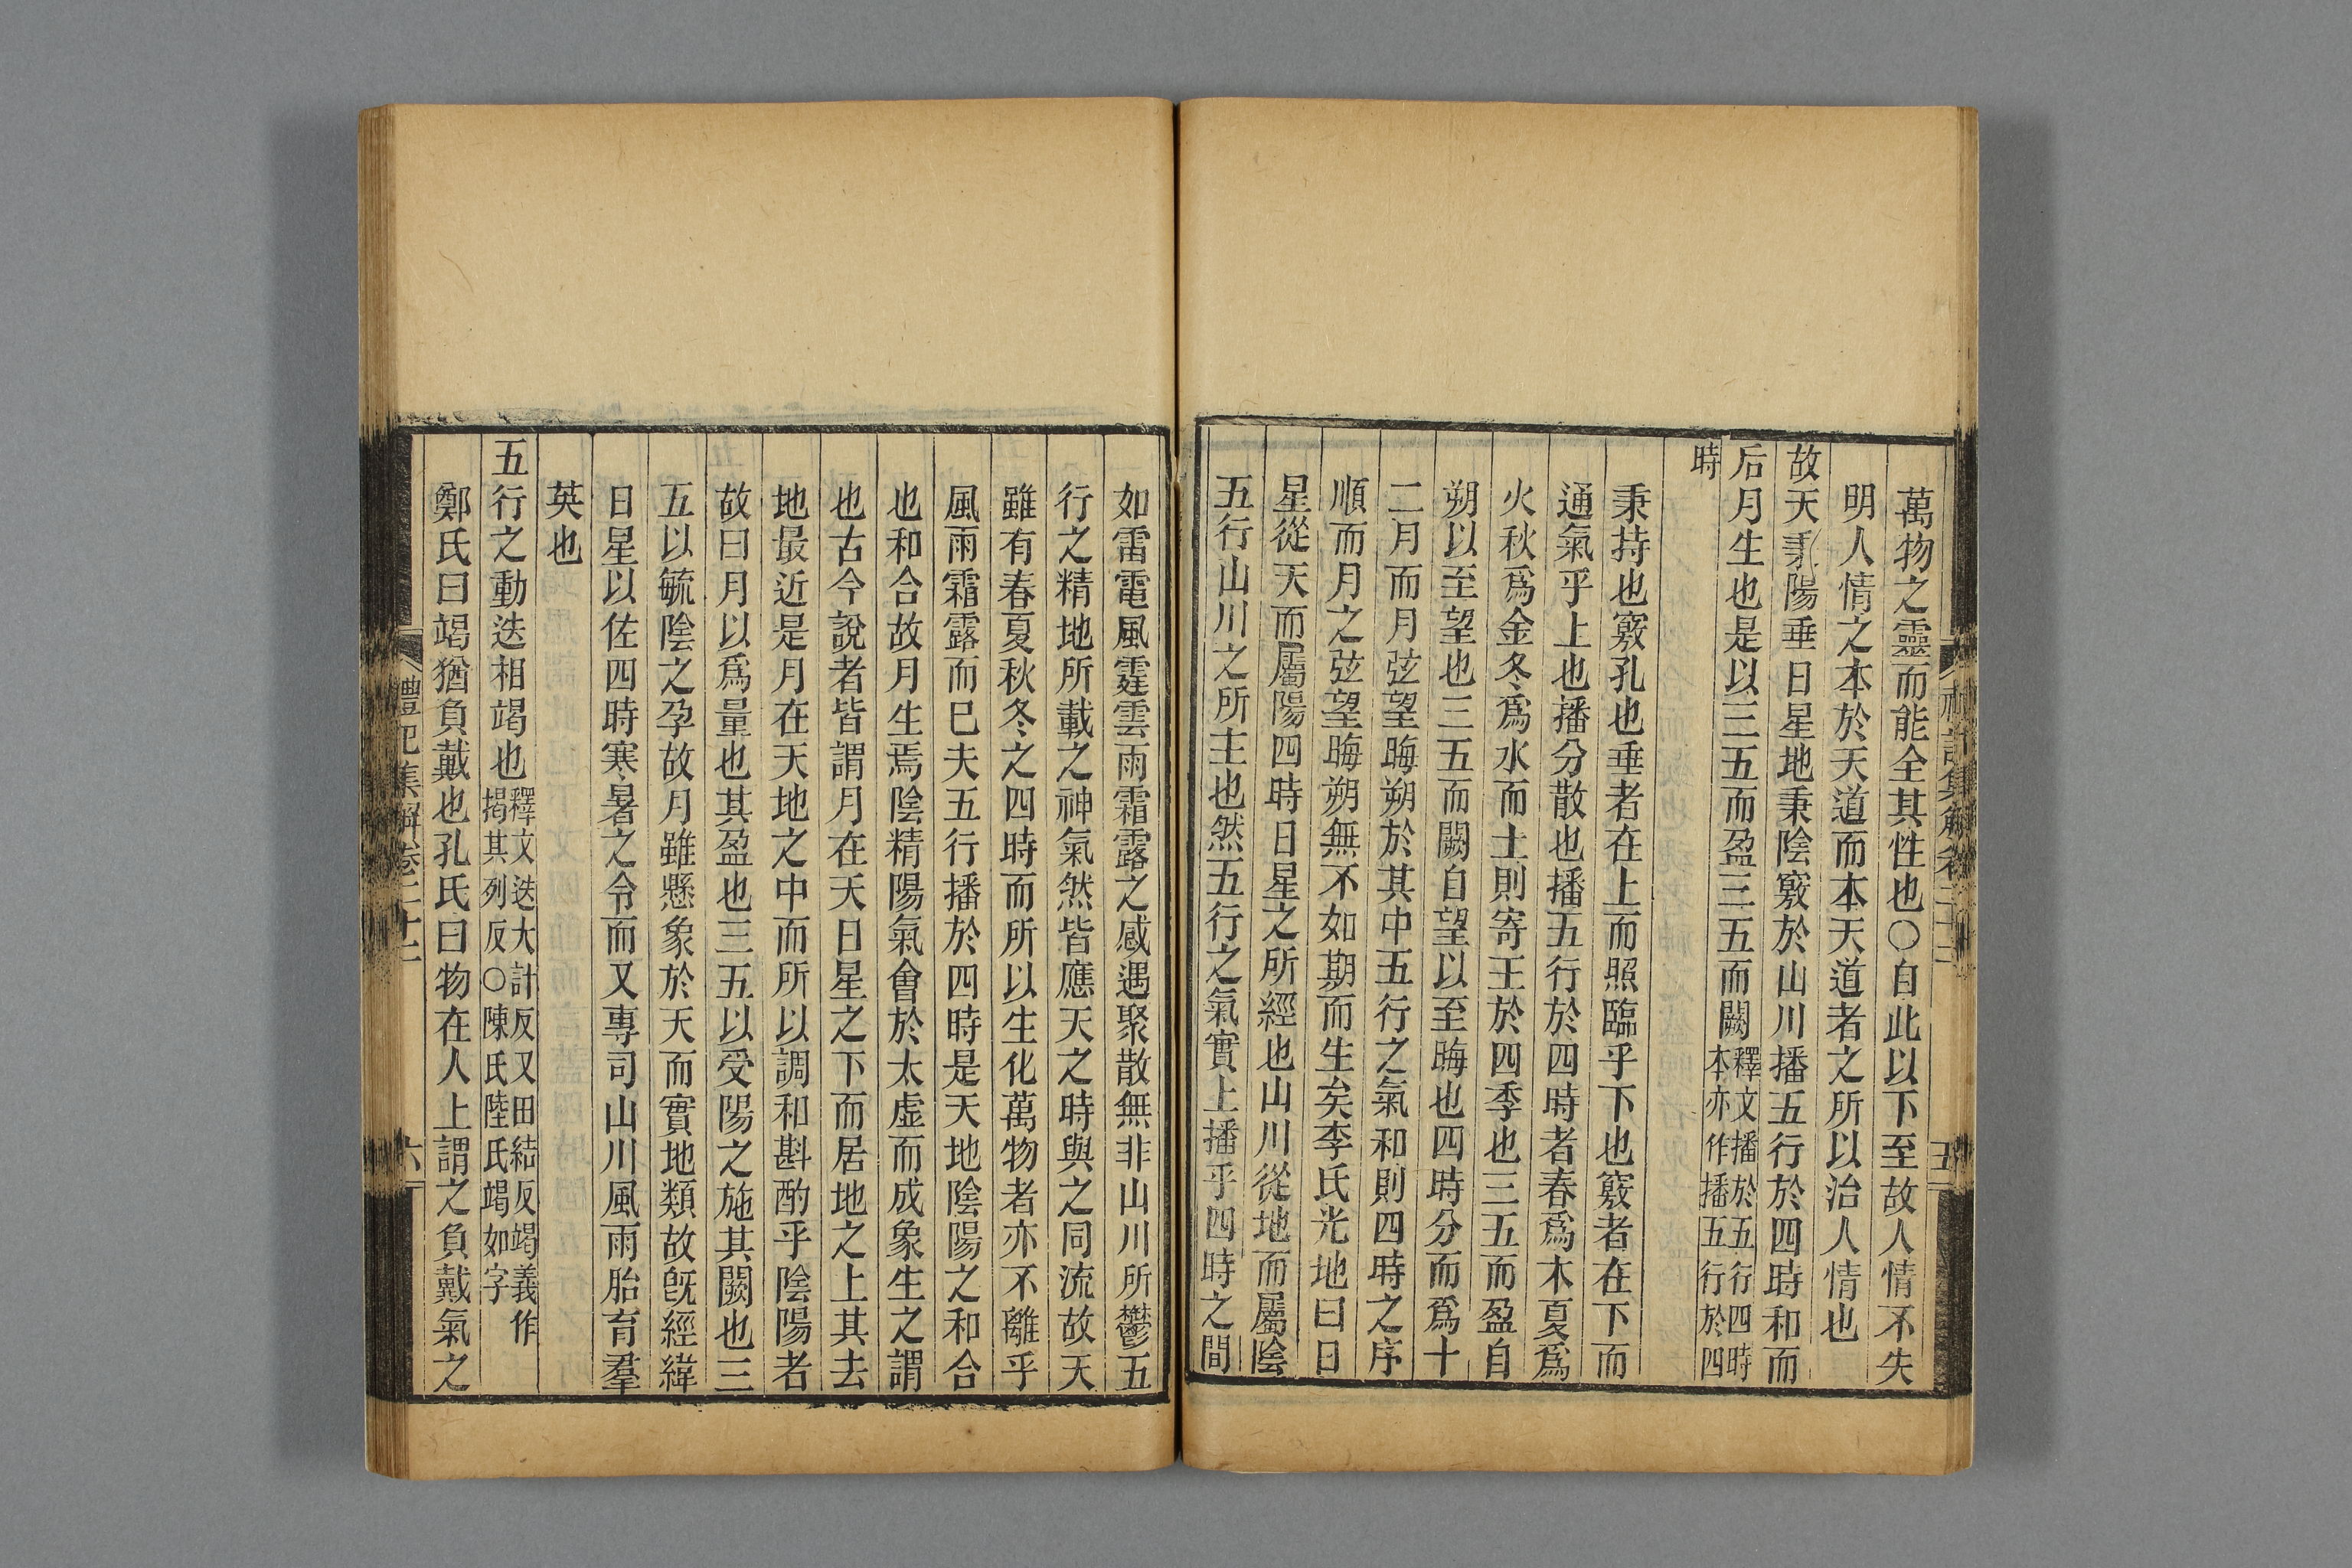 萬物之靈而能全其性也○自此以下至故人情不失
明人情之本於天道而本天道者之所以治人情也
故天秉陽垂日星地秉陰竅於山川播五行於四時和而
后月生也是以三五而盈三五而闕釋文播於五行四時本亦作播五行於四
時
秉持也竅孔也垂者在上而照臨乎下也竅者在下而
通氣乎上也播分散也播五行於四時者春爲木夏爲
火秋爲金冬爲水而土則寄王於四季也三五而盈自
朔以至望也三五而闕自望以至晦也四時分而爲十
二月而月弦望晦朔於其中五行之氣和則四時之序
順而月之弦望晦朔無不如期而生矣李氏光地曰日
星從天而屬陽四時日星之所經也山川從地而屬陰
五行山川之所主也然五行之氣實上播乎四時之間
五
如雷電風霆雲雨霜露之感遇聚散無非山川所鬱五
行之精地所載之神氣然皆應天之時與之同流故天
雖有春夏秋冬之四時而所以生化萬物者亦不離乎
風雨霜露而已夫五行播於四時是天地陰陽之和合
也和合故月生焉陰精陽氣會於太虛而成象生之謂
也古今說者皆謂月在天日星之下而居地之上其去
地最近是月在天地之中而所以調和斟酌乎陰陽者
故曰月以爲量也其盈也三五以受陽之施其闕也三
五以毓陰之孕故月雖懸象於天而實地類故旣經緯
日星以佐四時寒暑之令而又專司山川風雨胎育羣
英也
五行之動迭相竭也釋文迭大計反又田結反竭義作揭其列反○陳氏陸氏竭如字
鄭氏曰竭猶負戴也孔氏曰物在人上謂之負戴氣之
禮記集解卷二十二
六